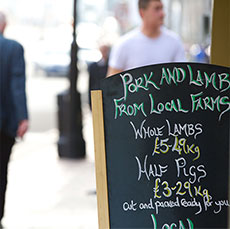 Pork and Lamb
From Local Farms
Whole Lambs
£5.49kg
Half Pigs
£3.29kg
cut and packed ready for you
Local